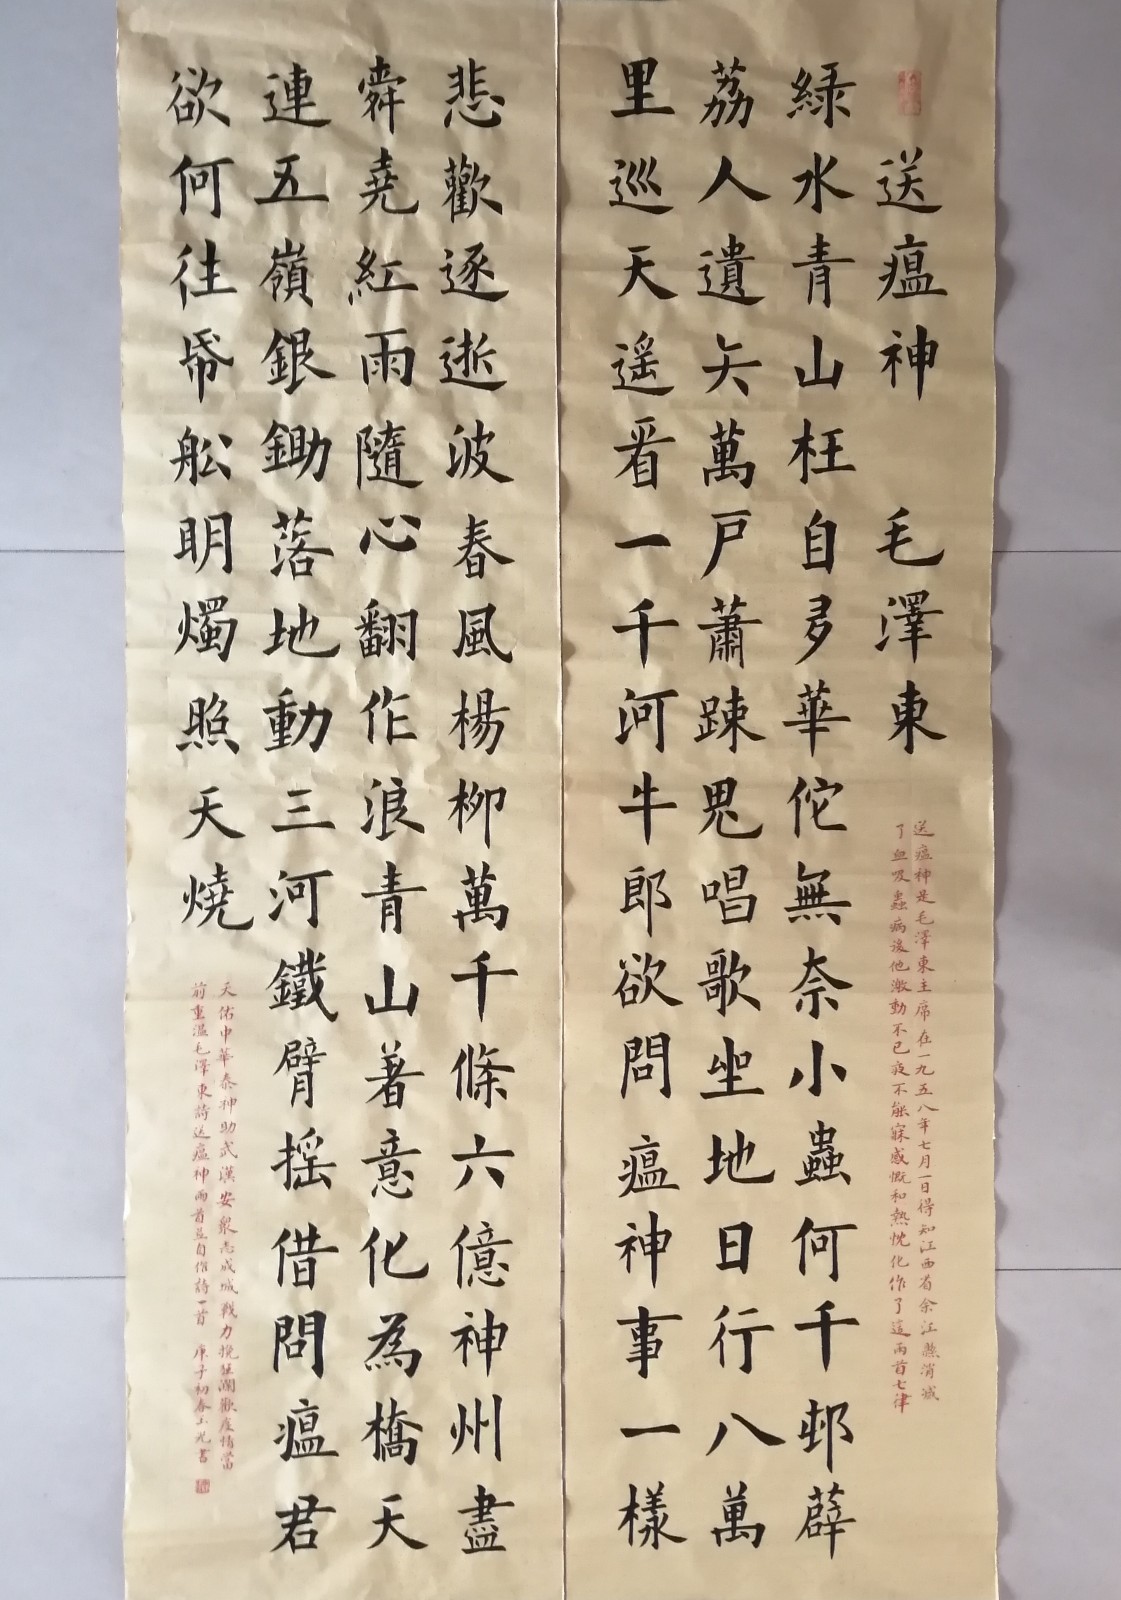 送瘟神 毛澤東
綠水青山枉自多華佗無奈小蟲何千邨薜
荔人遺矢萬戶蕭踈鬼唱歌坐地日行八萬
里巡天遥看一千河牛郎欲問瘟神事一樣
送瘟神是毛澤東主席在一九五八年七月一日得知江西省余江縣消滅
了血吸蟲病後他激動不已夜不能寐感慨和熱忱化作了這兩首七律
悲歡逐逝波春風楊柳萬千條六億神州盡
舜堯紅雨隨心翻作浪青山著意化為橋天
連五嶺銀鋤落地動三河鐵臂摇借問瘟君
欲何往帋船明燭照天燒
天佑中華泰神助武漢安衆志成城戰力挽狂瀾歡度情當
前重温毛澤東詩送瘟神兩首並自作詩一首 庚子初春 書